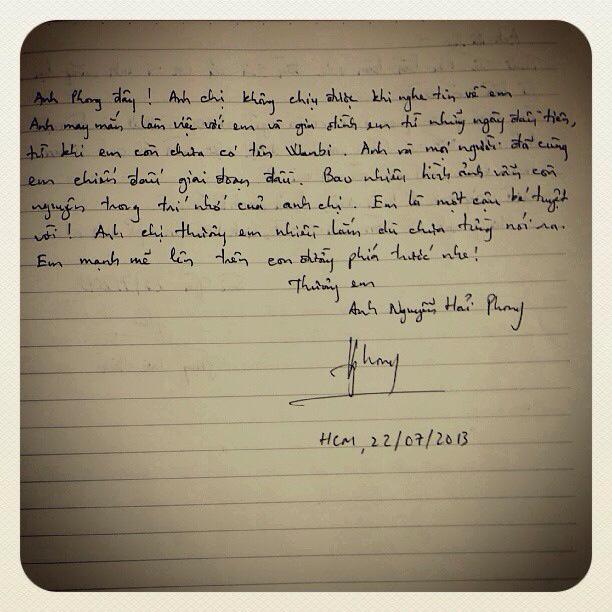 Anh Phong đây ! Anh chị không chịu được khi nghe tin về em.
Anh may mắn làm việc với em và gia đình em từ những ngày đầu tiên,
từ khi em còn chưa có tên Wanbi. Anh và mọi người đã cùng
em chiến đấu giai đoạn đầu. Bao nhiêu hình ảnh vẫn còn
nguyên trong trí nhớ của anh chị. Em là một cậu bé tuyệt
vời ! Anh chị thương em nhiều lắm dù chưa từng nói ra.
Em mạnh mẽ lên trên con đường phía trước nhe !
Thương em
Anh Nguyễn Hải Phong
HPhong
HCM, 22/07/2013